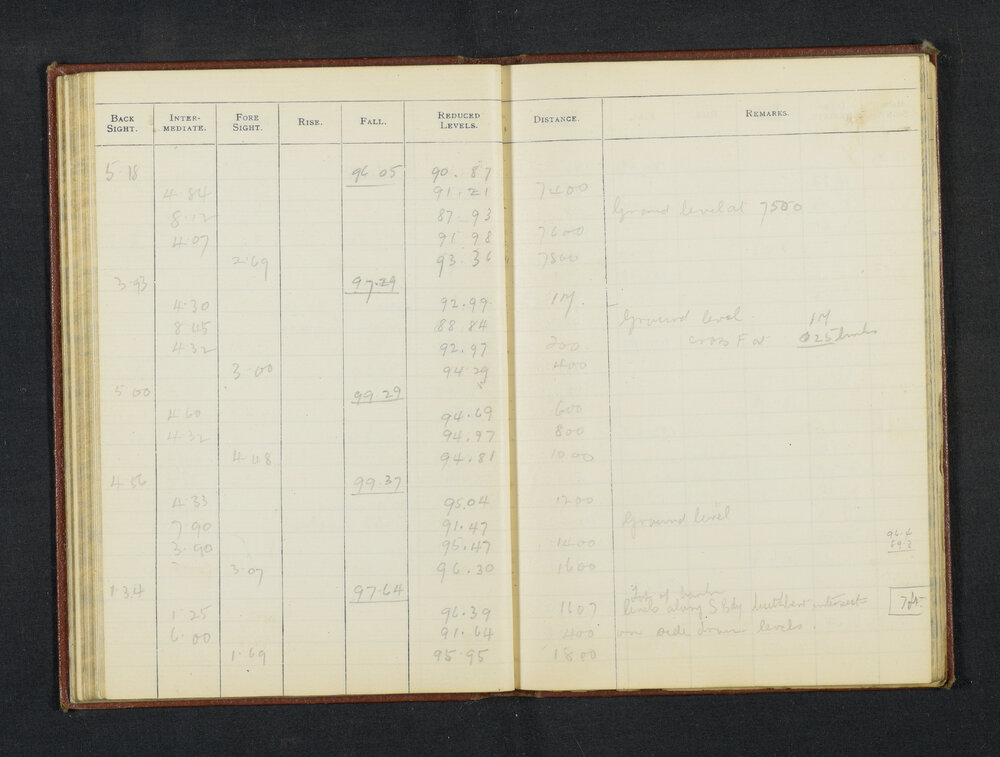 BACK SIGHT. INTER-MEDIATE. FORE SIGHT. RISE. FALL. REDUCED LEVELS. DISTANCE. REMARKS.
5.18 96.05 90.87
4.84 91.21 7400
8.12 87.93 Ground level at 7500
4.07 91.98 7600
2.69 93.36 7800
3.93 97.29
4.30 92.99 1M.
8.45 88.84 Ground level 1M
4.32 92.97 200
3.00 94.29 400
5.00 99.29
4.60 94.69 600
4.32 94.97 800
4.48 94.81 1000
4.56 99.37
4.33 95.04 1200
7.90 91.47 Ground level
3.90 95.47 1400
3.07 96.30 1600
1.34 97.64
1.25 96.39 1607 levels along S Bdy
6.00 91.64 400 side drain levels.
1.69 95.95 1800
7ft.